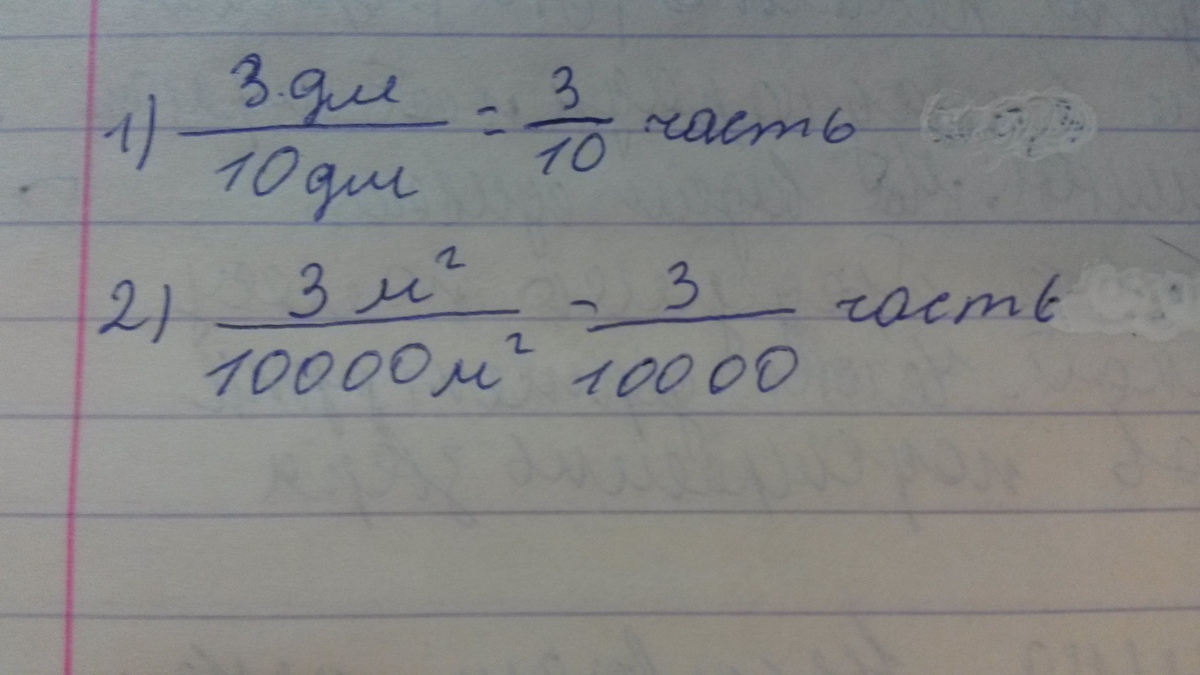 1) 3 дм / 10 дм = 3 / 10 часть
2) 3 м² / 10000 м² - 3 / 10000 часть